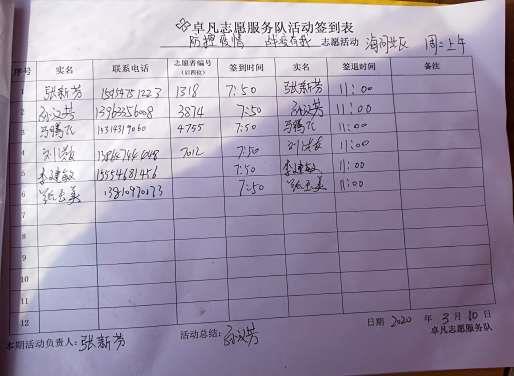 卓凡志愿服务队活动签到表
防控疫情 战疫有我 志愿活动 海润社区 周二上午
序号 实名 联系电话 志愿者编号(后四位) 签到时间 实名 签退时间 备注
1 张新芳 1318 7:50 张新芳 11:00
2 孙汉芳 13963356008 3874 7:50 孙汉芳 11:00
3 马腾飞 15314319060 4755 7:50 马腾飞 11:00
4 7012 7:50 11:00
5 李建敏 15554681456 7:50 李建敏 11:00
6 7:50 11:00
7
8
9
10
11
12
本期活动负责人: 张新芳 活动总结: 孙汉芳 日期 2020 年 3 月 10 日
卓凡志愿服务队